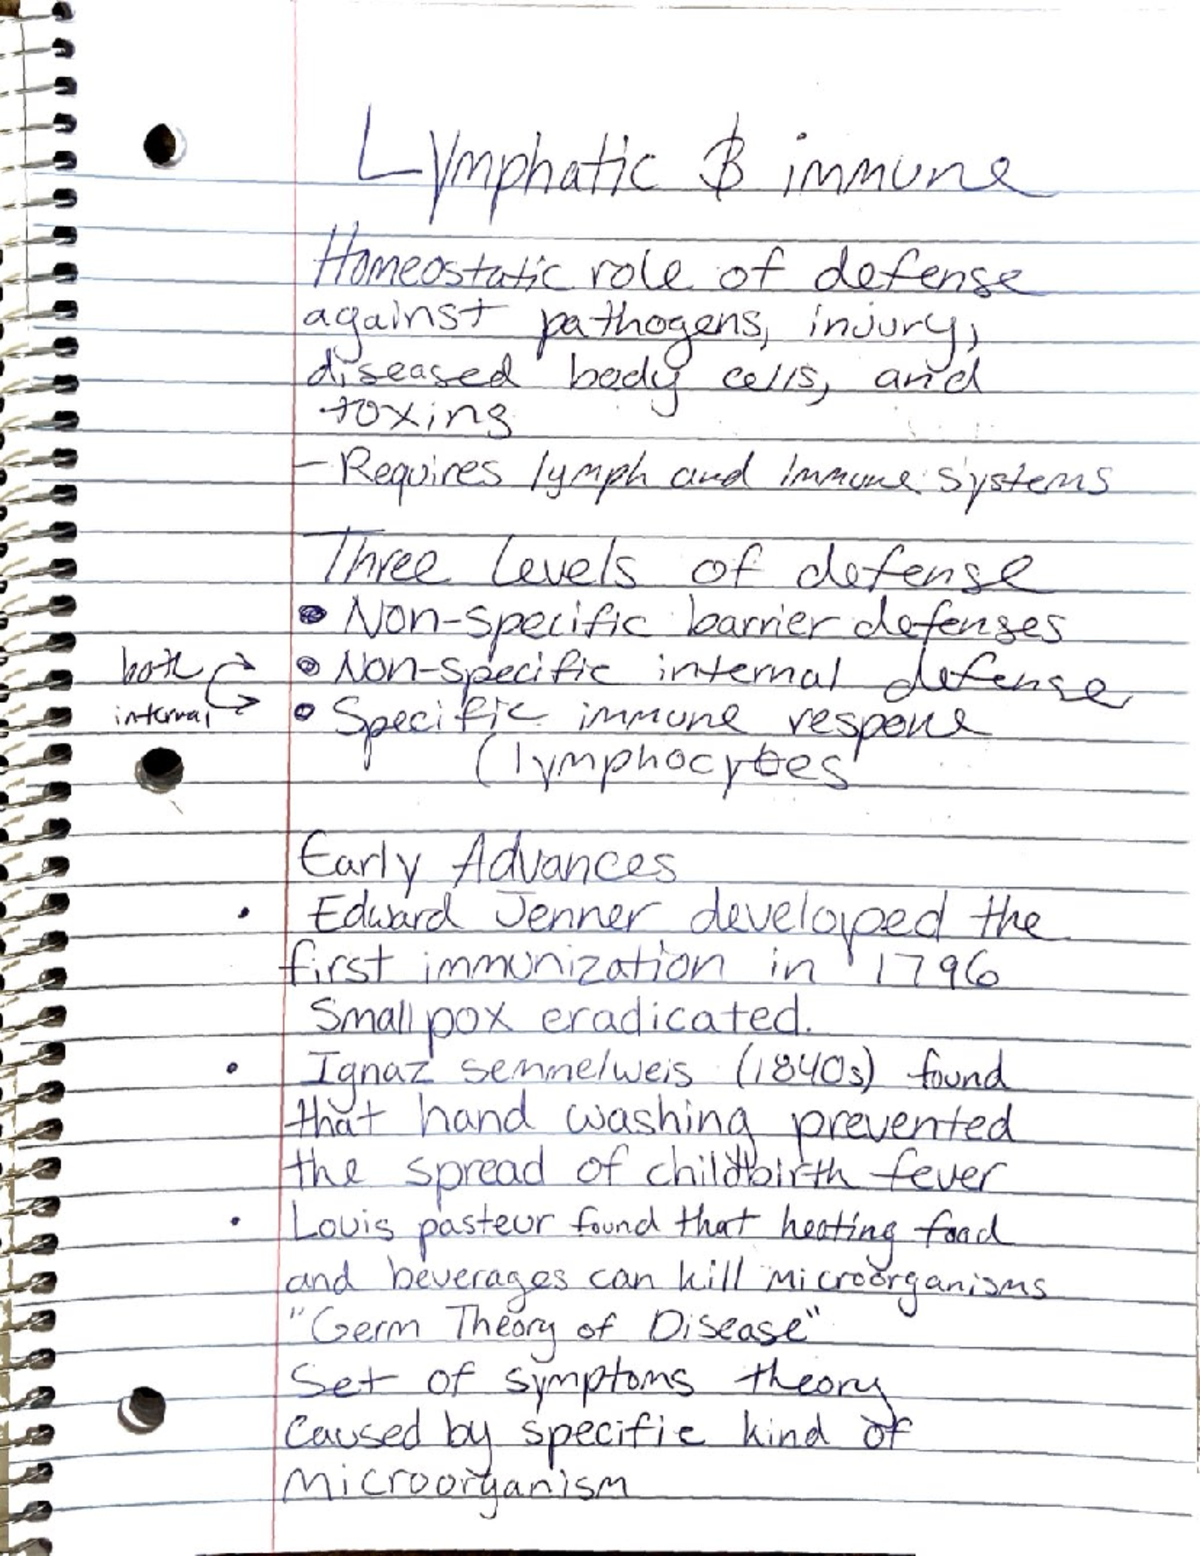 Lymphatic & immune
Homeostatic role of defense
against pathogens, injury,
diseased body cells, and
toxins
- Requires lymph and immune systems
Three levels of defense
• Non-specific barrier defenses
both • Non-specific internal defense
internal • Specific immune respone
(lymphocytes
Early Advances
• Edward Jenner developed the
first immunization in 1796
Smallpox eradicated.
• Ignaz semmelweis (1840s) found
that hand washing prevented
the spread of childbirth fever
• Louis pasteur found that heating food
and beverages can kill microorganisms
"Germ Theory of Disease"
Set of symptoms theory
caused by specific kind of
microorganism